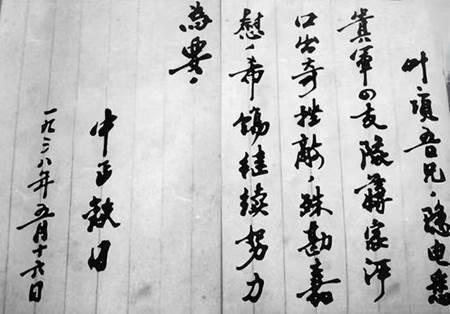 叶、項吾兄、隐电悉
貴軍四支隊蔣家河
口出奇挫敵、殊勘嘉
慰、希飭继续努力
為要、
中正 日
一九三八年五月十六日